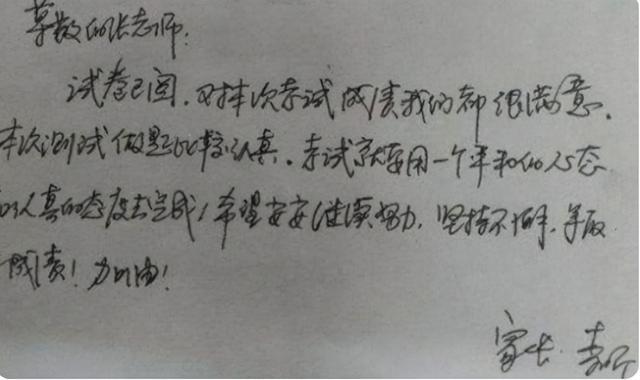 尊敬的张老师:
试卷已阅，对本次考试成绩我们都很满意，
本次测试做题比较认真。考试就要用一个平和的心态
认真的态度去完成！希望安安继续努力，坚持不懈，争取
成绩！加油！
家长:李